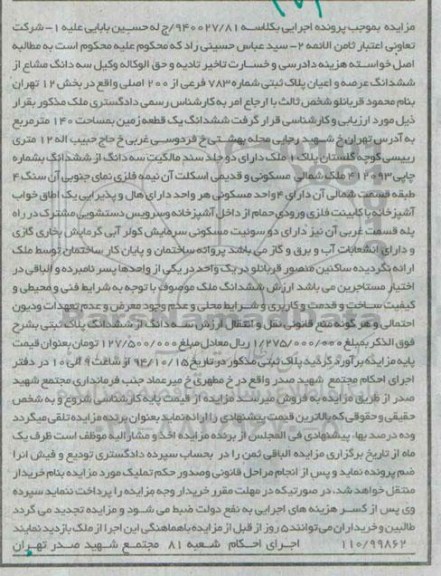 مزایده بموجب پرونده اجرایی بکلاسه ۹۴۰۰۲۷/۸۱/ج له حسین بابایی علیه ۱- شرکت
تعاونی اعتبار ثامن الائمه ۲- سید عباس حسینی راد که محکوم علیه محکوم است به مطالبه
اصل خواسته هزینه دادرسی و خسارت تاخیر تادیه و حق الوکاله وکیل سه دانگ مشاع از
ششدانگ عرصه و اعیان پلاک ثبتی شماره ۷۸۳ فرعی از ۲۰۰ اصلی واقع در بخش ۱۲ تهران
بنام محمود قربانلو شخص ثالث با ارجاع امر به کارشناس رسمی دادگستری ملک مذکور بقرار
ذیل مورد ارزیابی و کارشناسی قرار گرفت ششدانگ یک قطعه زمین بمساحت ۱۴۰ مترمربع
به آدرس تهران خ شهید رجایی محله بهشتی خ فردوسی غربی خ حاج حبیب اله ۱۲ متری
رییسی کوچه گلستان پلاک ۱ ملک دارای دو جلد سند مالکیت سه دانگ از ششدانگ بشماره
چاپی ۴۱۲۰۹۳ ملک شمالی مسکونی و قدیمی اسکلت آن نیمه فلزی نمای جنوبی آن سنگ ۴
طبقه قسمت شمالی آن دارای ۴ واحد مسکونی هر واحد دارای هال و پذیرایی یک اطاق خواب
آشپزخانه با کابینت فلزی ورودی حمام از داخل آشپزخانه وسرویس دستشویی مشترک در راه
پله قسمت غربی آن نیز دارای دو سوئیت مسکونی سرمایش کولر آبی گرمایش بخاری گازی
و دارای انشعابات آب و برق و گاز می باشد پروانه ساختمان و پایان کار ساختمان توسط ملک
ارائه نگردیده ساکنین منصور قربانلو در یک واحد در یکی از واحدها پسر نامبرده و الباقی در
اختیار مستاجرین می باشد ارزش ششدانگ ملک موصوف با توجه به شرایط فنی و محیطی و
کیفیت ساخت و قدمت و کاربری و شرایط محلی و عدم وجود معرض و عدم تعهدات ودیون
احتمالی و هرگونه منع قانونی نقل و انتقال ارزش سه دانگ از ششدانگ پلاک ثبتی بشرح
فوق الذکر بمبلغ ۱/۲۷۵/۰۰۰/۰۰۰ ریال معادل مبلغ ۱۲۷/۵۰۰/۰۰۰ تومان بعنوان قیمت
پایه مزایده برآورد گردید پلاک ثبتی مذکور در تاریخ ۹۴/۱۰/۱۵ از ساعت ۹ الی ۱۰ در دفتر
اجرای احکام مجتمع شهید صدر واقع در خ مطهری خ میرعماد جنب فرمانداری مجتمع شهید
صدر از طریق مزایده به فروش میرسد مزایده از قیمت پایه کارشناسی شروع و به شخص
حقیقی و حقوقی که بالاترین قیمت پیشنهادی را ارائه نماید بعنوان برنده مزایده تلقی میگردد
وده درصد بهاء پیشنهادی فی المجلس از برنده مزایده اخذ و مشارالیه موظف است ظرف یک
ماه از تاریخ برگزاری مزایده الباقی ثمن را در بحساب سپرده دادگستری تودیع و فیش انرا
ضم پرونده نماید و پس از انجام مراحل قانونی وصدور حکم تملیک مورد مزایده بنام خریدار
منتقل خواهد شد، در صورتیکه در مهلت مقرر خریدار وجه مزایده را پرداخت ننماید سپرده
وی پس از کسر هزینه های اجرایی به نفع دولت ضبط می شود و مزایده تجدید می گردد
طالبین و خریداران می توانند ۵ روز از قبل از مزایده باهماهنگی این اجرا از ملک بازدید نمایند
۱۱۰/۹۹۸۶۲ اجرای احکام شعبه ۸۱ مجتمع شهید صدر تهران